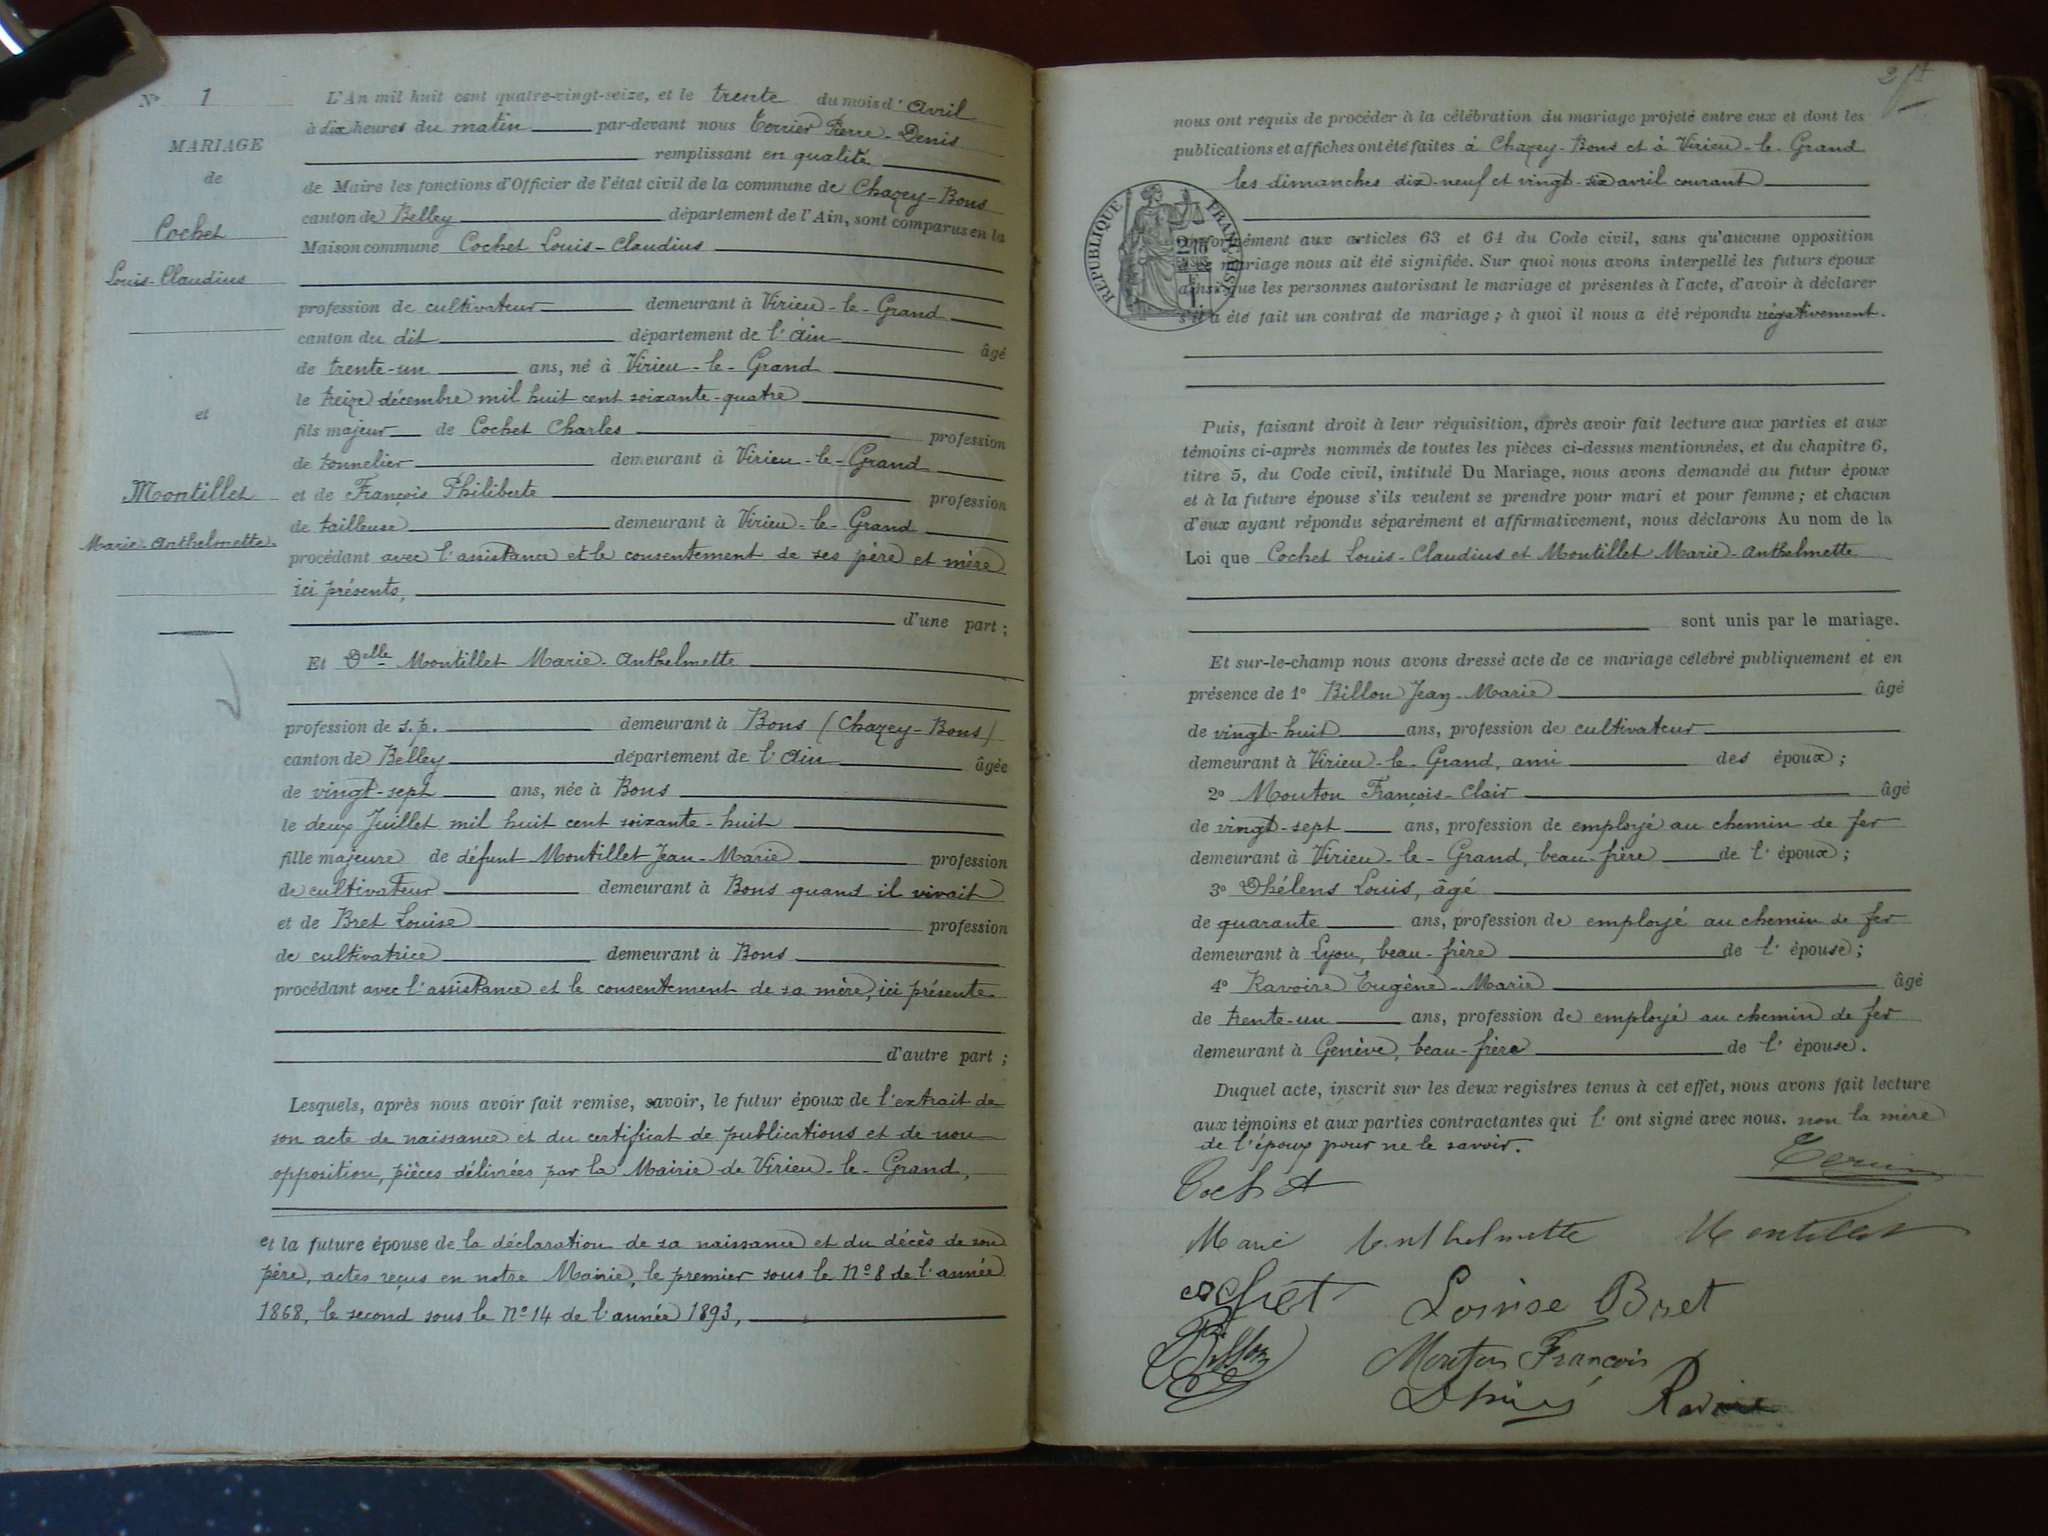 N° 1
MARIAGE
de
Cochet
Louis-Claudius
et
Montillet
Marie-Anthelmette
L'An mil huit cent quatre-vingt-seize, et le trente du mois d'avril
à dix heures du matin par-devant nous Terrier Pierre-Denis
remplissant en qualité
de Maire les fonctions d'Officier de l'état civil de la commune de Chazey-Bons
canton de Belley département de l'Ain, sont comparus en la
Maison commune Cochet Louis-Claudius
profession de cultivateur demeurant à Virieu-le-Grand
canton du dit département de l'Ain âgé
de trente-un ans, né à Virieu-le-Grand
le treize décembre mil huit cent soixante-quatre
fils majeur de Cochet Charles profession
de tonnelier demeurant à Virieu-le-Grand
et de François Philiberte profession
de tailleuse demeurant à Virieu-le-Grand
procédant avec l'assistance et le consentement de ses père et mère
ici présents,
d'une part ;
Et Delle Montillet Marie-Anthelmette
profession de s.p. demeurant à Bons (Chazey-Bons)
canton de Belley département de l'Ain âgée
de vingt-sept ans, née à Bons
le deux Juillet mil huit cent soixante-huit
fille majeure de défunt Montillet Jean-Marie profession
de cultivateur demeurant à Bons quand il vivait
et de Bret Louise profession
de cultivatrice demeurant à Bons
procédant avec l'assistance et le consentement de sa mère, ici présente
d'autre part ;
Lesquels, après nous avoir fait remise, savoir, le futur époux de l'extrait de
son acte de naissance et du certificat de publications et de non
opposition, pièces délivrées par la Mairie de Virieu-le-Grand,
et la future épouse de la déclaration de sa naissance et du décès de son
père, actes reçus en notre Mairie, le premier sous le N° 8 de l'année
1868, le second sous le N° 14 de l'année 1893,
nous ont requis de procéder à la célébration du mariage projeté entre eux et dont les
publications et affiches ont été faites à Chazey-Bons et à Virieu-le-Grand
les dimanches dix-neuf et vingt-six avril courant
RÉPUBLIQUE FRANÇAISE
conformément aux articles 63 et 64 du Code civil, sans qu'aucune opposition
à ce mariage nous ait été signifiée. Sur quoi nous avons interpellé les futurs époux
ainsi que les personnes autorisant le mariage et présentes à l'acte, d'avoir à déclarer
s'il a été fait un contrat de mariage ; à quoi il nous a été répondu négativement.
Puis, faisant droit à leur réquisition, après avoir fait lecture aux parties et aux
témoins ci-après nommés de toutes les pièces ci-dessus mentionnées, et du chapitre 6,
titre 5, du Code civil, intitulé Du Mariage, nous avons demandé au futur époux
et à la future épouse s'ils veulent se prendre pour mari et pour femme ; et chacun
d'eux ayant répondu séparément et affirmativement, nous déclarons Au nom de la
Loi que Cochet Louis-Claudius et Montillet Marie-Anthelmette
sont unis par le mariage.
Et sur-le-champ nous avons dressé acte de ce mariage célébré publiquement et en
présence de 1° Billon Jean-Marie âgé
de vingt-huit ans, profession de cultivateur
demeurant à Virieu-le-Grand, ami des époux ;
2° Mouton François-Clair âgé
de vingt-sept ans, profession de employé au chemin de fer
demeurant à Virieu-le-Grand, beau-frère de l'époux ;
3° Dhélens Louis, âgé
de quarante ans, profession de employé au chemin de fer
demeurant à Lyon, beau-frère de l'épouse ;
4° Ravoire Eugène-Marie âgé
de trente-un ans, profession de employé au chemin de fer
demeurant à Genève, beau-frère de l'épouse.
Duquel acte, inscrit sur les deux registres tenus à cet effet, nous avons fait lecture
aux témoins et aux parties contractantes qui l'ont signé avec nous. non la mère
de l'époux pour ne le savoir.
Cochet
Marie Anthelmette Montillet
cochet Louise Bret
Billon Mouton François
Ravoire